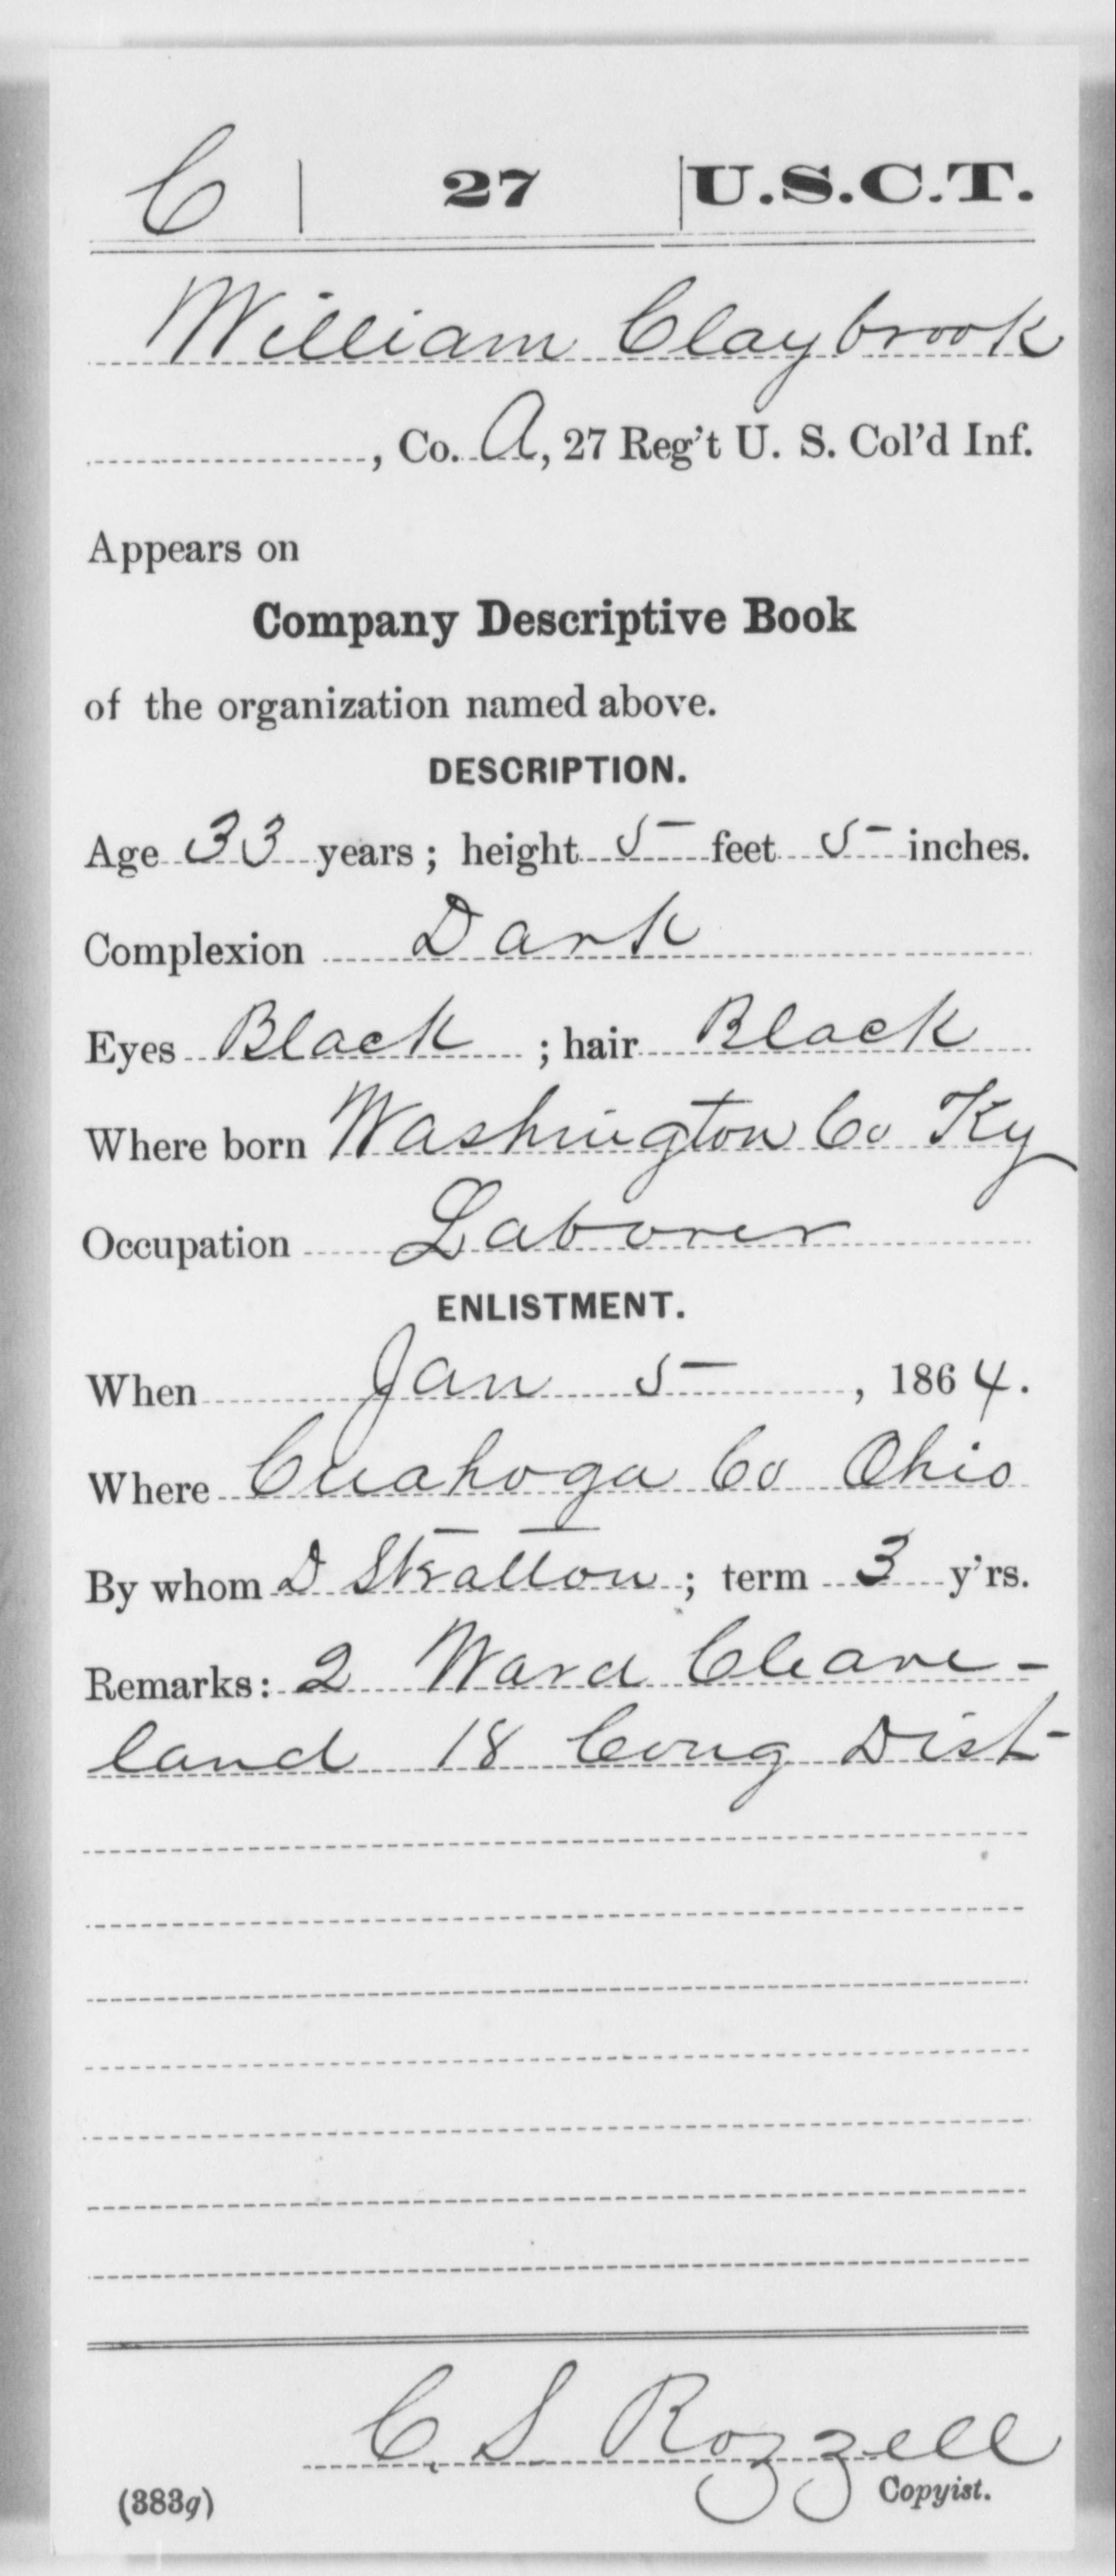 C | 27 | U.S.C.T.
William Claybrook
, Co. A, 27 Reg't U. S. Col'd Inf.
Appears on
Company Descriptive Book
of the organization named above.
DESCRIPTION.
Age 33 years; height 5 feet 5 inches.
Complexion Dark
Eyes Black ; hair Black
Where born Washington Co Ky
Occupation Laborer
ENLISTMENT.
When Jan 5 , 1864.
Where Cuahoga Co Ohio
By whom D Stratton ; term 3 y'rs.
Remarks: 2 Ward Cleave-
land 18 Cong Dist
C. S. Rozzell
(383g) Copyist.